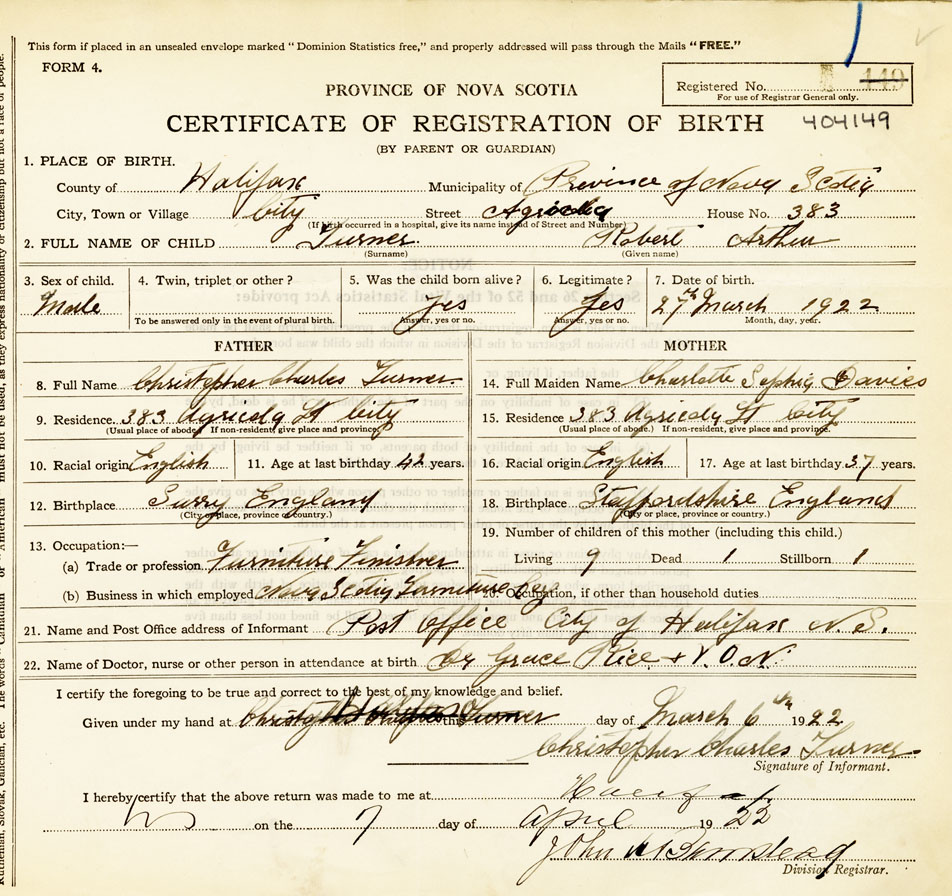 This form if placed in an unsealed envelope marked "Dominion Statistics free," and properly addressed will pass through the Mails "FREE."
FORM 4.
Registered No. 149
For use of Registrar General only.
PROVINCE OF NOVA SCOTIA
CERTIFICATE OF REGISTRATION OF BIRTH 404149
(BY PARENT OR GUARDIAN)
1. PLACE OF BIRTH.
County of Halifax Municipality of Province of Nova Scotia
City, Town or Village City Street Agricola House No. 383
(If birth occurred in a hospital, give its name instead of Street and Number)
2. FULL NAME OF CHILD Turner Robert Arthur
(Surname) (Given name)
3. Sex of child. 4. Twin, triplet or other? 5. Was the child born alive? 6. Legitimate? 7. Date of birth.
Male Yes Yes 27th March 1922
To be answered only in the event of plural birth. Answer, yes or no. Answer, yes or no. Month, day, year.
FATHER MOTHER
8. Full Name Christopher Charles Turner 14. Full Maiden Name Charlotte Sophia Davies
9. Residence 383 Agricola St City 15. Residence 383 Agricola St City
(Usual place of abode. If non-resident, give place and province) (Usual place of abode. If non-resident, give place and province.
10. Racial origin English 11. Age at last birthday 42 years. 16. Racial origin English 17. Age at last birthday 37 years.
12. Birthplace Surry England 18. Birthplace Staffordshire England
(City or place, province or country.) (City or place, province or country.)
13. Occupation:— 19. Number of children of this mother (including this child.)
(a) Trade or profession Furniture Finisher Living 9 Dead 1 Stillborn 1
(b) Business in which employed Nova Scotia Furniture 20. Occupation, if other than household duties
21. Name and Post Office address of Informant Post Office City of Halifax N.S.
22. Name of Doctor, nurse or other person in attendance at birth Dr Grace Rice + V.O.N.
I certify the foregoing to be true and correct to the best of my knowledge and belief.
Given under my hand at Halifax this day of March 6th 1922
Christopher Charles Turner
Signature of Informant.
I hereby certify that the above return was made to me at Halifax
NS on the 7 day of April 1922
John
Division Registrar.